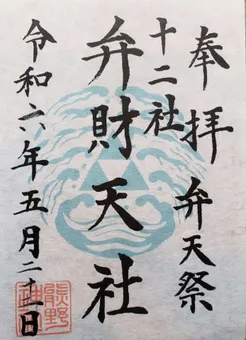 奉拝 弁天祭
十二社
弁財天社
令和六年五月二十一日
熊野
神社